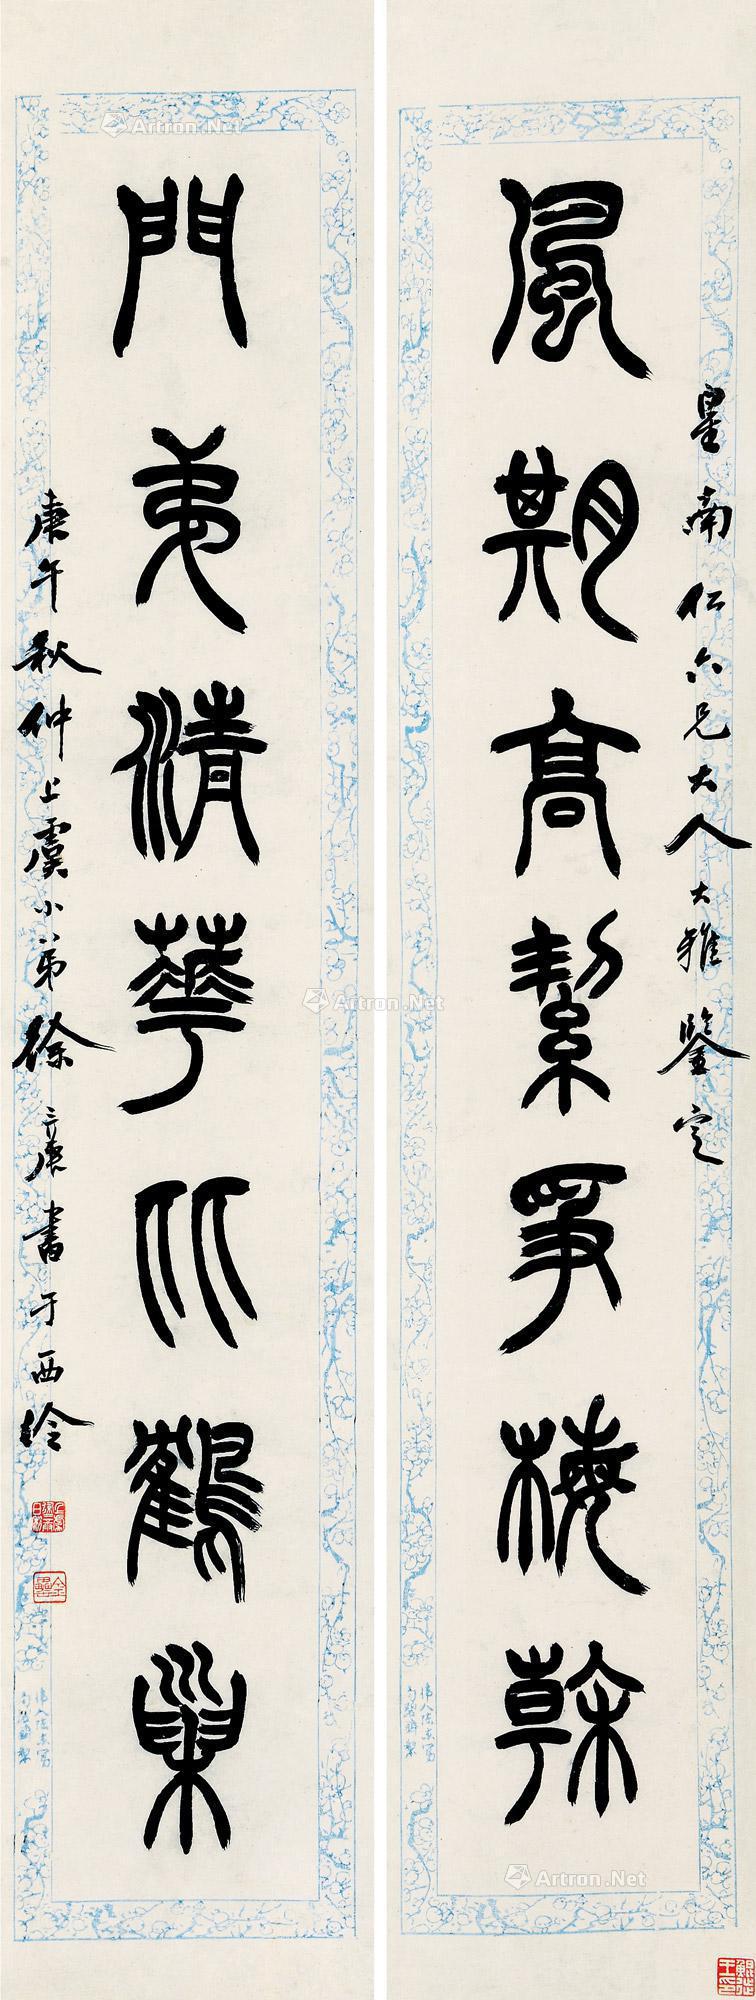 風期高絜爭梅榦
星南仁六兄大人大雅鑒定
門弟清華比鶴巢
庚午秋仲上虞小弟徐三庚書于西泠
Artron.Net
Artron.Net
Artron.Net
Artron.Net